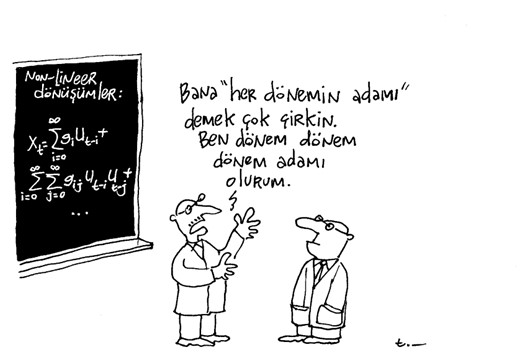 NON-LİNEER
DÖNÜŞÜMLER:
X_t = ∞∑i=0 g_i U_t-i +
∞∑i=0 ∞∑j=0 g_ij U_t-i U_t-j +
...
Bana "her dönemin adamı"
demek çok çirkin.
Ben dönem dönem
dönem adamı
olurum.
t.—